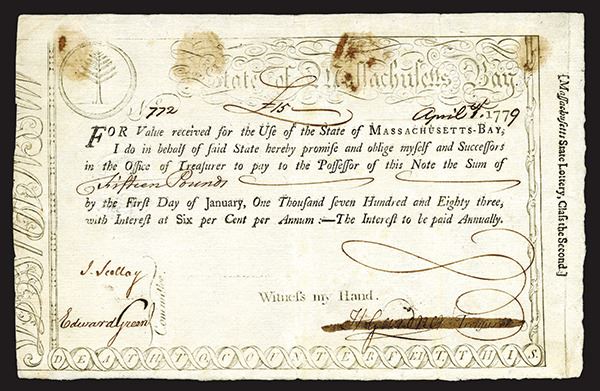 State of Massachusetts Bay.
N 772 £15 April 1779
FOR Value received for the Use of the State of MASSACHUSETTS-BAY,
I do in behalf of said State hereby promise and oblige myself and Successors
in the Office of Treasurer to pay to the Possessor of this Note the Sum of
Fifteen Pounds
by the First Day of January, One Thousand seven Hundred and Eighty three,
with Interest at Six per Cent per Annum:—The Interest to be paid Annually.
J. Scollay
Edward Green
Committee
Witness my Hand.
H Gardner Treasurer
DEATH TO COUNTERFEIT THIS.
[Massachusetts State Lottery, Class the Second.]